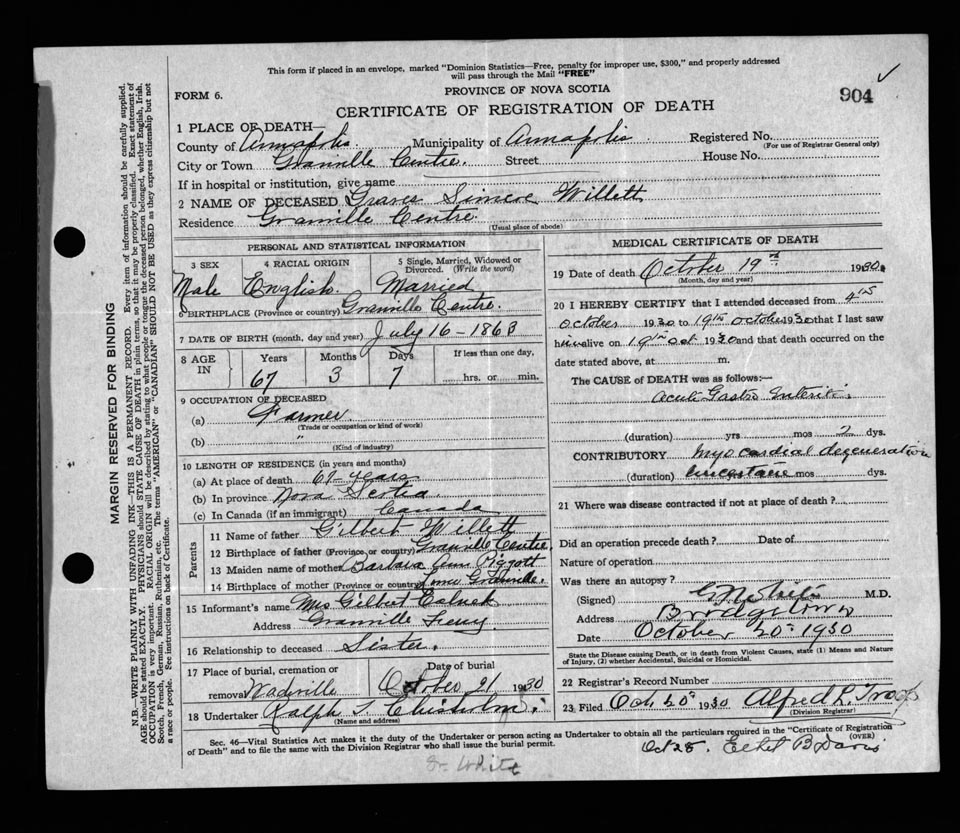 This form if placed in an envelope, marked "Dominion Statistics—Free, penalty for improper use, $300," and properly addressed
will pass through the Mail "FREE"
PROVINCE OF NOVA SCOTIA
FORM 6.
904
CERTIFICATE OF REGISTRATION OF DEATH
1 PLACE OF DEATH—
County of Annapolis Municipality of Annapolis Registered No.
(For use of Registrar General only)
City or Town Granville Centre. Street House No.
If in hospital or institution, give name
2 NAME OF DECEASED Graves Simcoe Willett
Residence Granville Centre.
(Usual place of abode)
PERSONAL AND STATISTICAL INFORMATION
3 SEX 4 RACIAL ORIGIN 5 Single, Married, Widowed or Divorced. (Write the word)
Male English. Married
6 BIRTHPLACE (Province or country) Granville Centre.
7 DATE OF BIRTH (month, day and year) July 16 - 1863
8 AGE IN Years Months Days If less than one day,
67 3 7 hrs. or min.
9 OCCUPATION OF DECEASED
(a) Farmer
(Trade or occupation or kind of work)
(b) "
(Kind of industry)
10 LENGTH OF RESIDENCE (in years and months)
(a) At place of death 67 years
(b) In province Nova Scotia
(c) In Canada (if an immigrant) Canada
Parents
11 Name of father Gilbert Willett
12 Birthplace of father (Province or country) Granville Centre.
13 Maiden name of mother Barbara Ann Piggott
14 Birthplace of mother (Province or country) Lower Granville.
15 Informant's name Mrs Gilbert
Address Granville Ferry
16 Relationship to deceased Sister.
17 Place of burial, cremation or Date of burial
removal October 21 1930
18 Undertaker Ralph S. Chisholm.
(Name and address)
MEDICAL CERTIFICATE OF DEATH
19 Date of death October 19th 1930.
(Month, day and year)
20 I HEREBY CERTIFY that I attended deceased from 4th
October 1930 to 19th October 1930 that I last saw
him alive on 19th Oct 1930 and that death occurred on the
date stated above, at m.
The CAUSE of DEATH was as follows:—
Acute Gastro Enteritis
(duration) yrs mos 2 dys.
CONTRIBUTORY Myocardial degeneration
(duration) uncertain mos dys.
21 Where was disease contracted if not at place of death?
Did an operation precede death? Date of
Nature of operation
Was there an autopsy?
(Signed) M.D.
Address Bridgetown
Date October 20th 1930
State the Disease causing Death, or in death from Violent Causes, state (1) Means and Nature
of Injury, (2) whether Accidental, Suicidal or Homicidal.
22 Registrar's Record Number
23 Filed Oct 20th 1930 Alfred L. Troop
(Division Registrar)
(OVER)
Sec. 46—Vital Statistics Act makes it the duty of the Undertaker or person acting as Undertaker to obtain all the particulars required in the "Certificate of Registration
of Death" and to file the same with the Division Registrar who shall issue the burial permit.
Oct 28. Ethel B Davis
Dr White
MARGIN RESERVED FOR BINDING
N.B.—WRITE PLAINLY WITH UNFADING INK—THIS IS A PERMANENT RECORD. Every item of information should be carefully supplied.
AGE should be stated EXACTLY. PHYSICIANS should STATE CAUSE OF DEATH in plain terms, so that it may be properly classified. Exact statement of
OCCUPATION is very important. RACIAL ORIGIN will be described by stating to what people or tongue the deceased person belonged, whether English, Irish,
Scotch, French, German, Russian, Ruthenian, etc. The terms "AMERICAN" or "CANADIAN" SHOULD NOT BE USED as they express citizenship but not
a race or people. See instructions on back of Certificate.